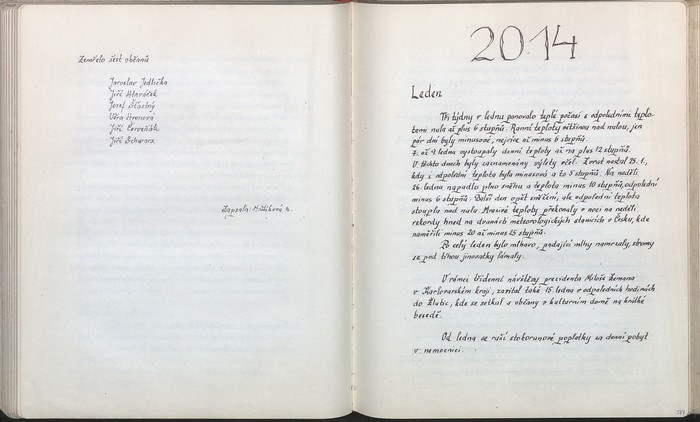 Zemřelo šest občanů
Jaroslav Jedlička
Jiří Hlaváček
Josef Šťastný
Věra Hronová
Jiří Červeňák
Jiří Schwarz
Zapsala: Mašková
2014
Leden
Tři týdny v lednu panovalo teplé počasí s odpoledními teplo-
tami nula až plus 6 stupňů. Ranní teploty většinou nad nulou, jen
pár dní byly minusové, nejvíce až minus 6 stupňů.
7. až 9. ledna vystoupaly denní teploty až na plus 12 stupňů.
V těchto dnech byly zaznamenány výlety včel. Zvrat nastal 25. 1.,
kdy i odpolední teplota byla minusová a to 5 stupňů. Na neděli
26. ledna napadlo plno sněhu a teplota minus 10 stupňů, odpolední
minus 6 stupňů. Další den opět sněžení, ale odpolední teplota
stoupla nad nulu. Mrazivé teploty překonaly v noci na neděli
rekordy hned na dvanácti meteorologických stanicích v Česku, kde
naměřili minus 20 až minus 25 stupňů.
Po celý leden bylo mlhavo, padající mlhy namrzaly, stromy
se pod tíhou jinovatky lámaly.
V rámci třídenní návštěvy prezidenta Miloše Zemana
v Karlovarském kraji, zavítal také 15. ledna v odpoledních hodinách
do Žlutic, kde se setkal s občany v kulturním domě na krátké
besedě.
Od ledna se ruší stokorunové poplatky za denní pobyt
v nemocnici.